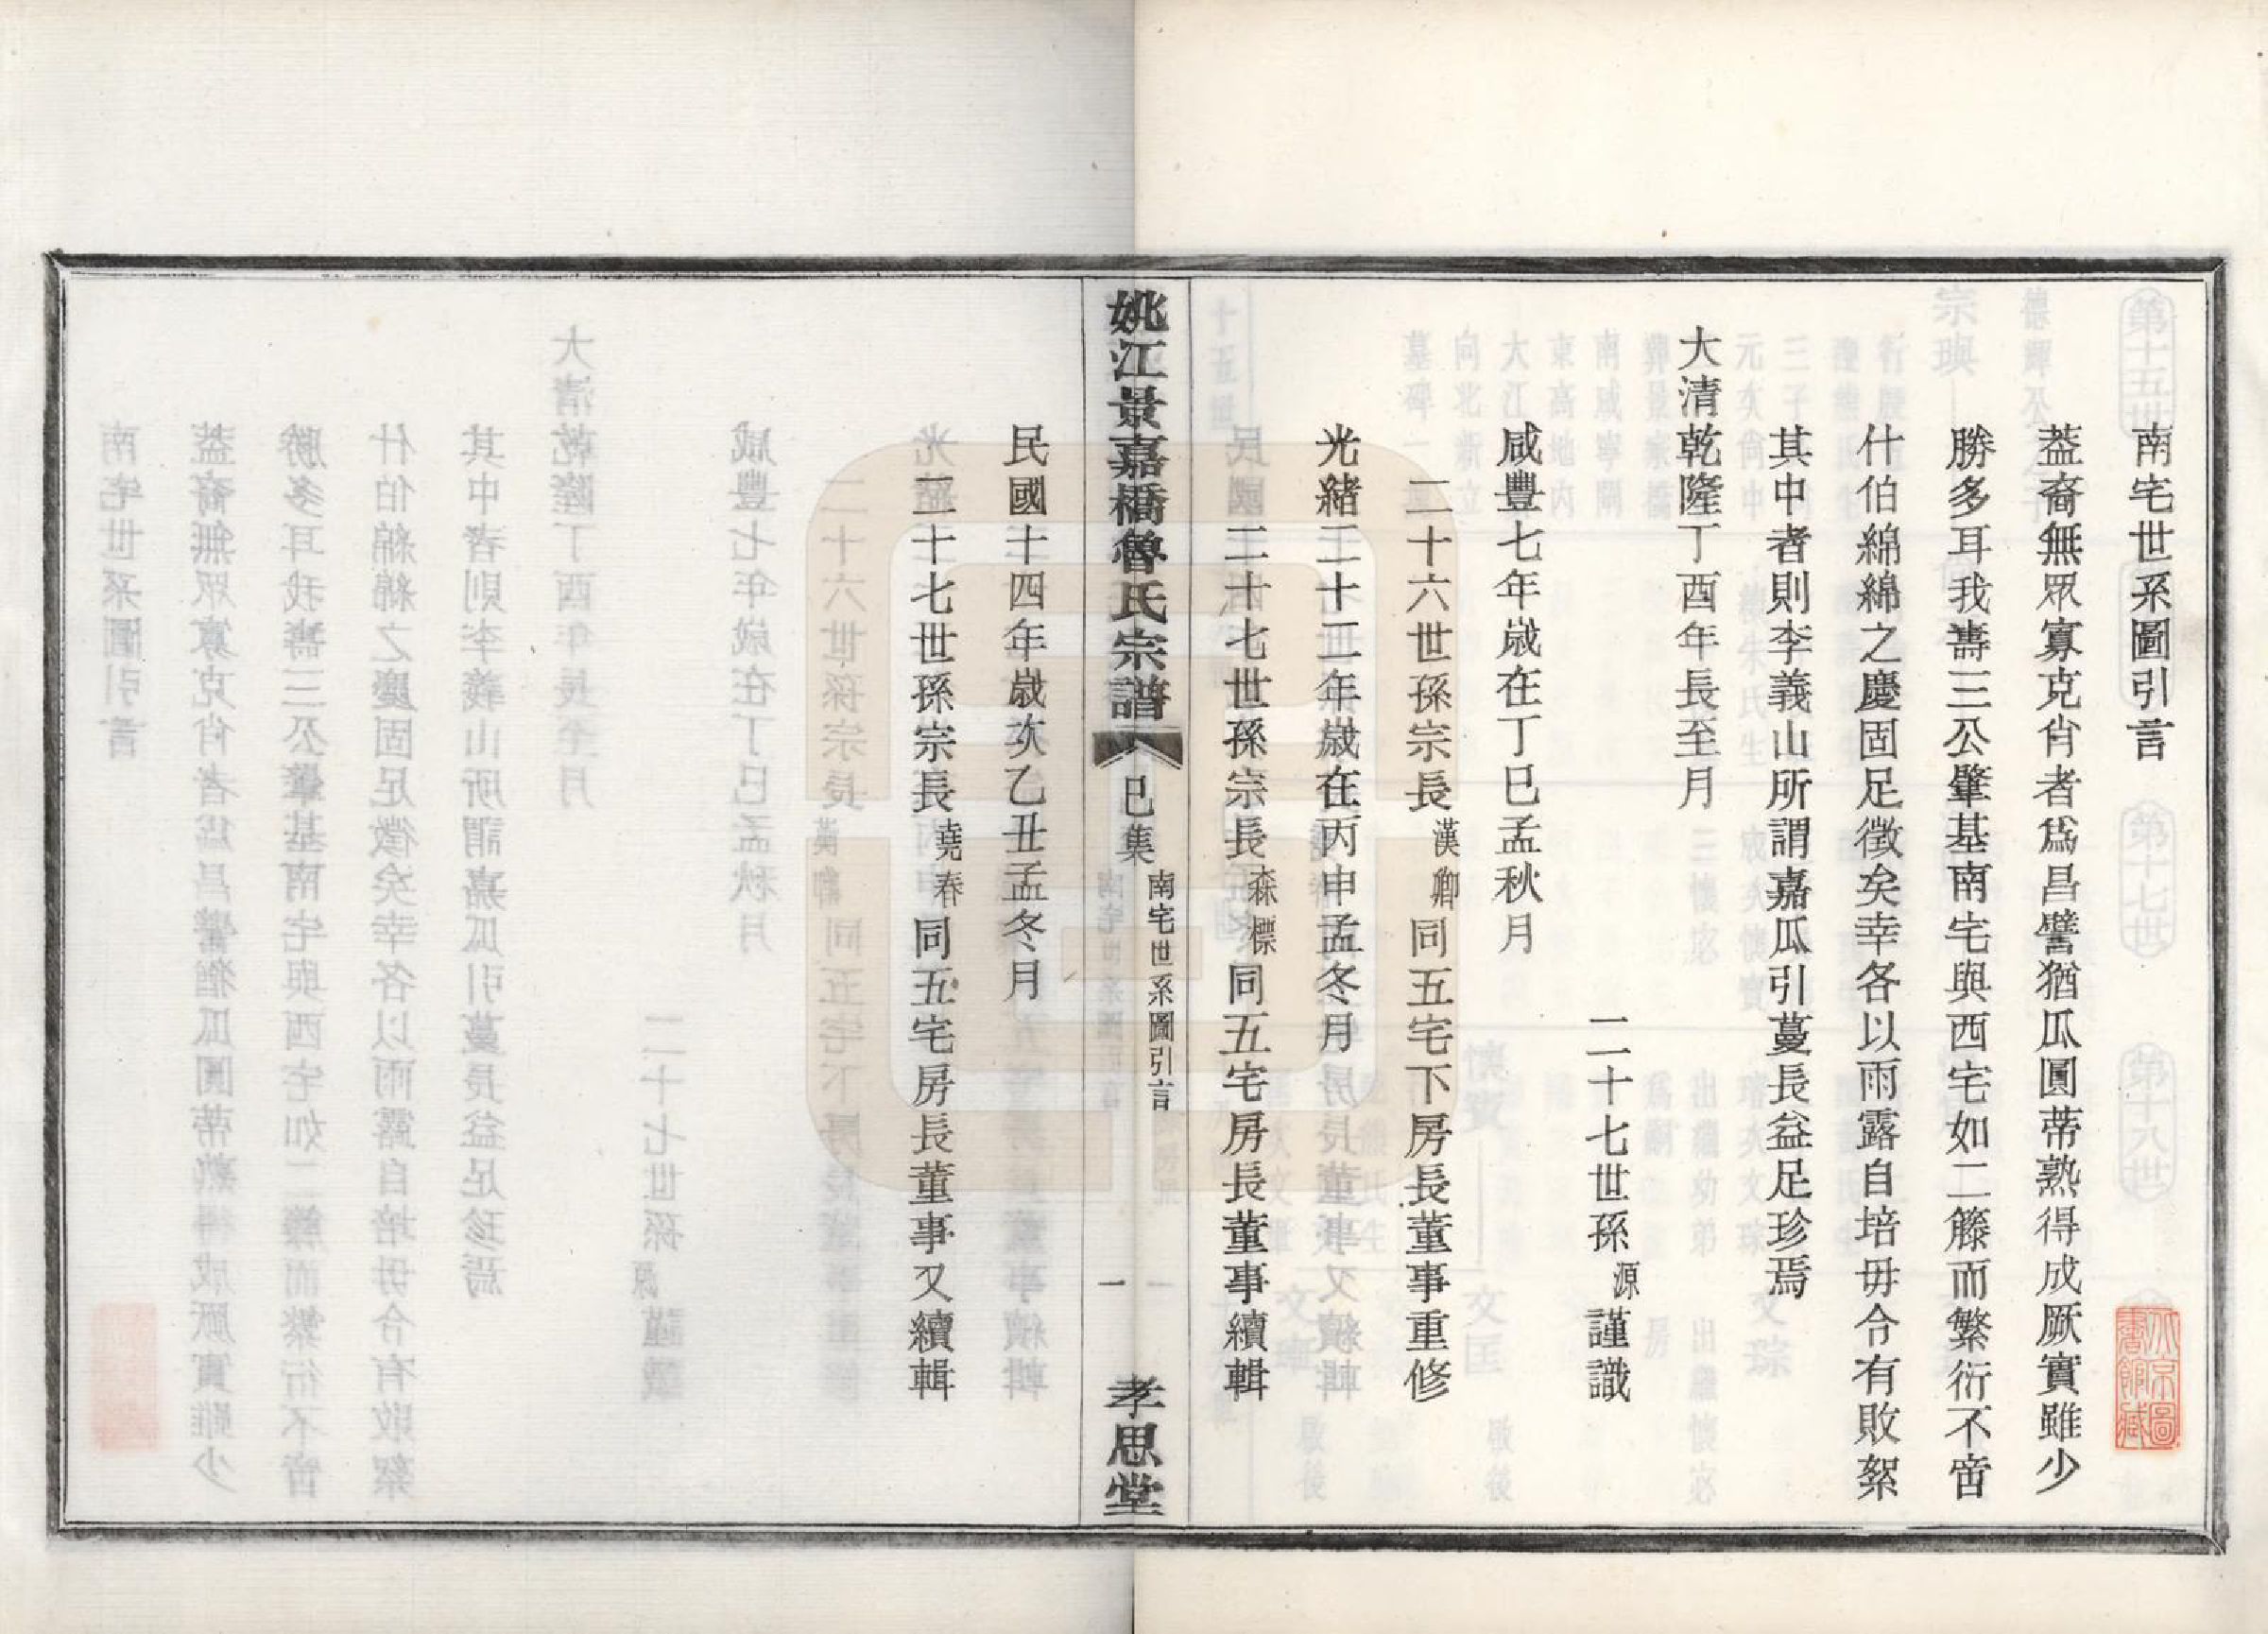 南宅世系圖引言
葢裔無眾寡克肖者爲昌譬猶瓜圓蒂熟得成厥實雖少
勝多耳我壽三公肇基南宅與西宅如二籐而繁衍不啻
什伯綿綿之慶固足徵矣幸各以雨露自培毋令有敗絮
其中者則李義山所謂嘉瓜引蔓長益足珍焉
大清乾隆丁酉年長至月
二十七世孫源謹識
咸豐七年歲在丁巳孟秋月
二十六世孫宗長漢卿同五宅下房長董事重修
光緒二十二年歲在丙申孟冬月
二十七世孫宗長森標同五宅房長董事續輯
姚江景嘉橋魯氏宗譜
巳集
南宅世系圖引言
一
孝思堂
民國十四年歲次乙丑孟冬月
二十七世孫宗長堯春同五宅房長董事又續輯
北京圖書館藏